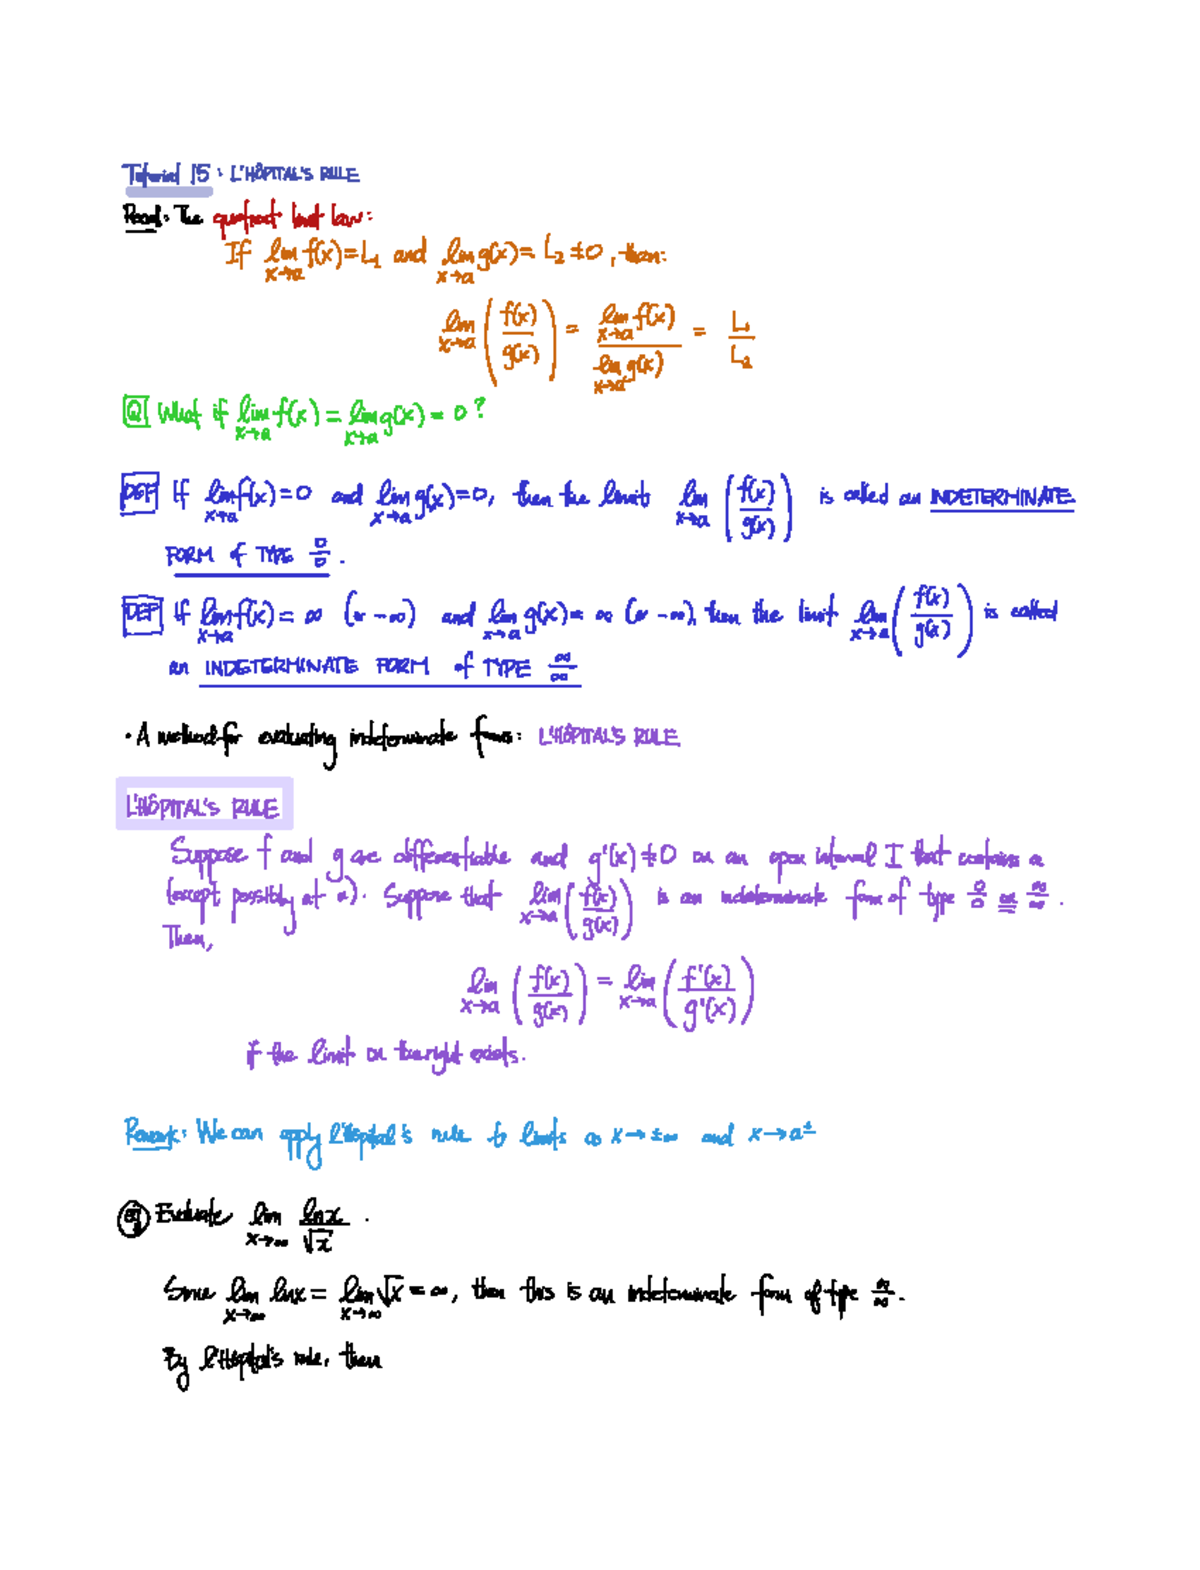 Tutorial 15: L'HÔPITAL'S RULE
Recall: The quotient limit law:
If lim x→a f(x)=L₁ and lim x→a g(x)= L₂ ≠0, then:
lim x→a (f(x)/g(x)) = lim x→a f(x) / lim x→a g(x) = L₁/L₂
Q What if lim x→a f(x) = lim x→a g(x) = 0?
DEF If lim x→a f(x)=0 and lim x→a g(x)=0, then the limit lim x→a (f(x)/g(x)) is called an INDETERMINATE
FORM of TYPE 0/0.
DEF If lim x→a f(x)= ∞ (or -∞) and lim x→a g(x)= ∞ (or -∞), then the limit lim x→a (f(x)/g(x)) is called
an INDETERMINATE FORM of TYPE ∞/∞
• A method for evaluating indeterminate forms: L'HÔPITAL'S RULE
L'HÔPITAL'S RULE
Suppose f and g are differentiable and g'(x)≠0 on an open interval I that contains a
(except possibly at a). Suppose that lim x→a (f(x)/g(x)) is an indeterminate form of type 0/0 or ∞/∞.
Then,
lim x→a (f(x)/g(x)) = lim x→a (f'(x)/g'(x))
if the limit on the right exists.
Remark: We can apply l'Hôpital's rule to limits as x→±∞ and x→a±
eg Evaluate lim x→∞ lnx/√x.
Since lim x→∞ lnx = lim x→∞ √x = ∞, then this is an indeterminate form of type ∞/∞.
By l'Hôpital's rule, then